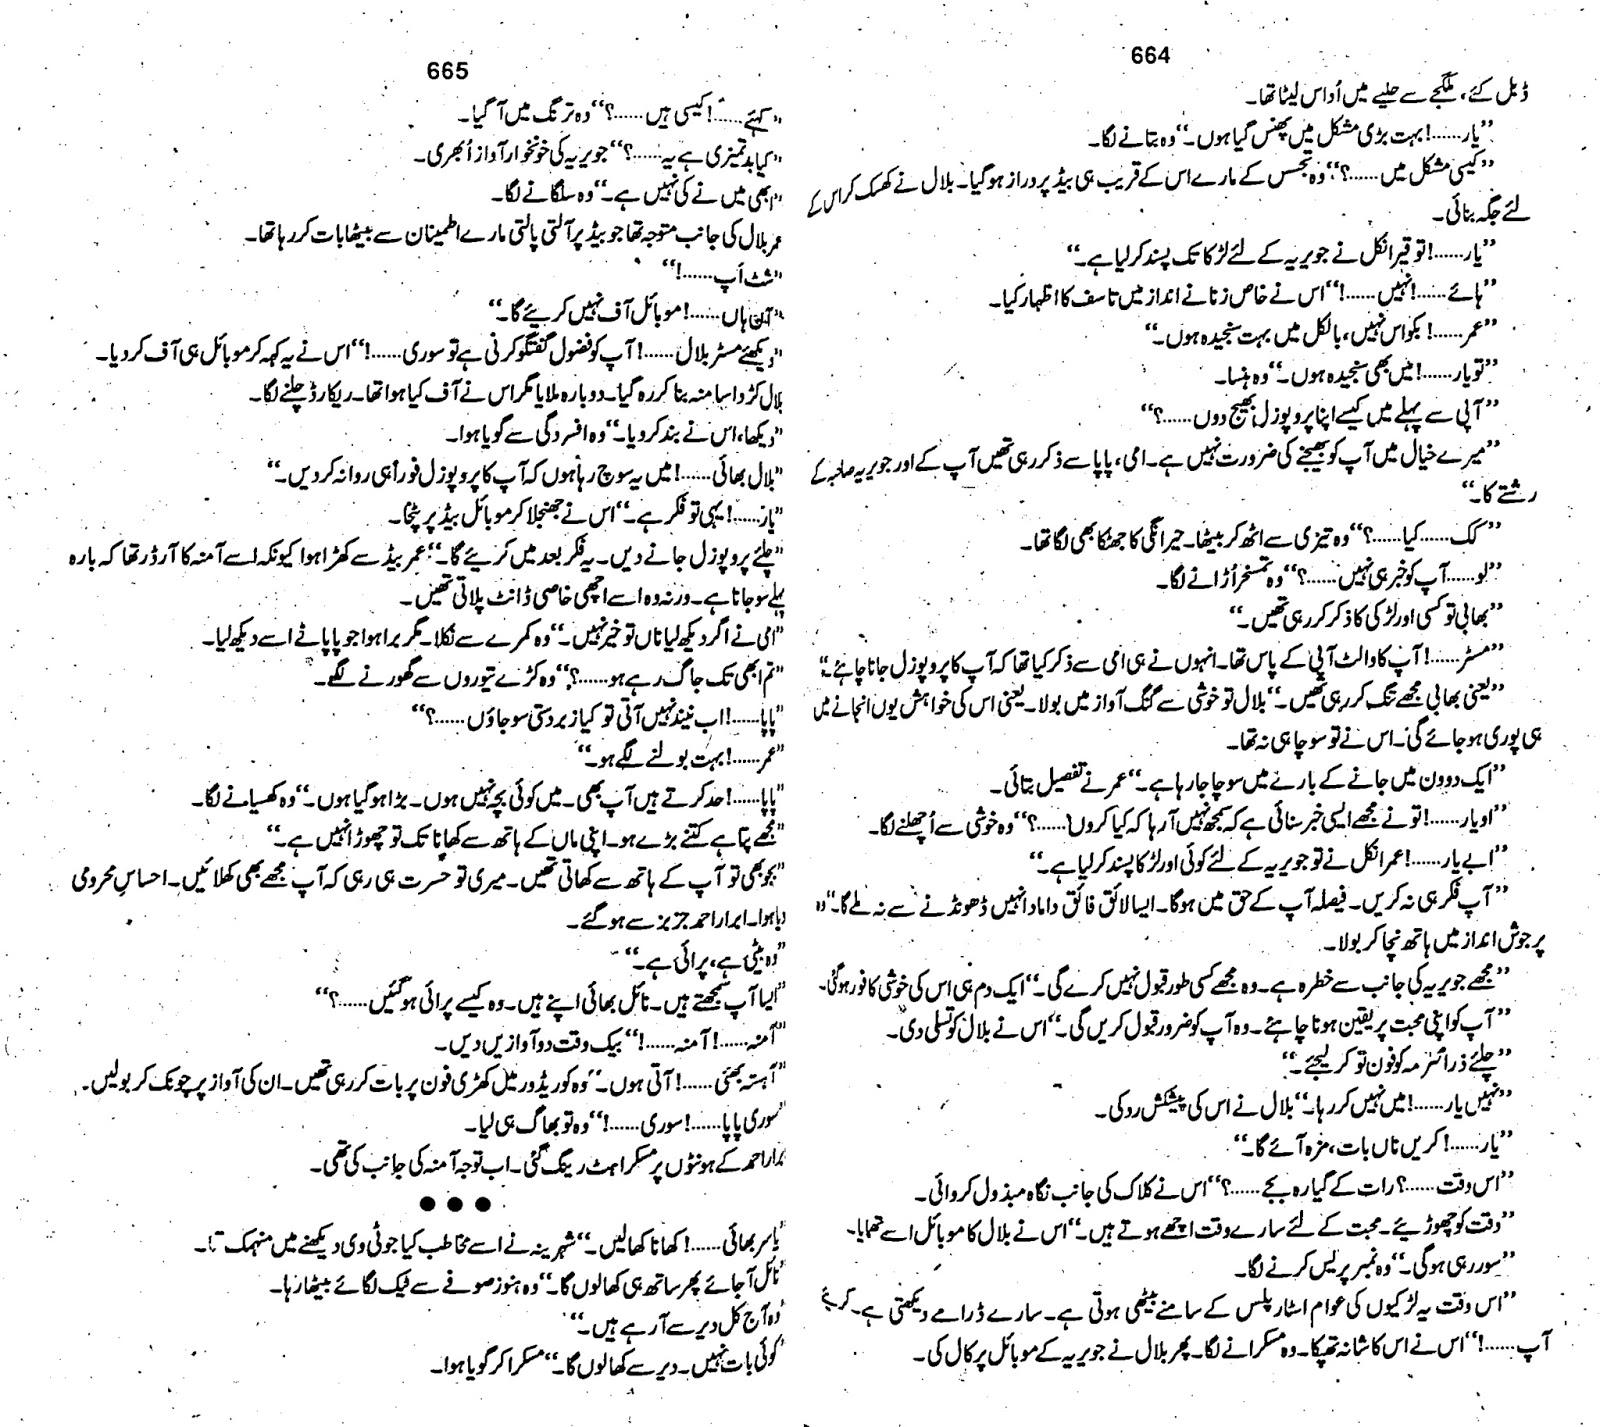 664
ڈبل کئے، ملگجے سے حلیے میں اُداس لیٹا تھا۔
”یار......! بہت بڑی مشکل میں پھنس گیا ہوں۔“ وہ بتانے لگا۔
”کیسی مشکل میں......؟“ وہ تجسس کے مارے اس کے قریب ہی بیڈ پر دراز ہو گیا۔ بلال نے کھسک کر اس کے
لئے جگہ بنائی۔
”یار......! توقیر انکل نے جویریہ کے لئے لڑکا تک پسند کر لیا ہے۔“
”ہائے......! نہیں......!“ اس نے خاص زنانے انداز میں تاسف کا اظہار کیا۔
”عمر......! بکواس نہیں، بالکل میں بہت سنجیدہ ہوں۔“
”تو یار......! میں بھی سنجیدہ ہوں۔“ وہ ہنسا۔
”آپی سے پہلے میں کیسے اپنا پروپوزل بھیج دوں......؟“
”میرے خیال میں آپ کو بھیجنے کی ضرورت نہیں ہے۔ امی، پاپا سے ذکر رہی تھیں آپ کے اور جویریہ صاحبہ کے
رشتے کا۔“
”کک...... کیا......؟“ وہ تیزی سے اٹھ کر بیٹھا۔ حیرانگی کا جھٹکا بھی لگا تھا۔
”لو...... آپ کو خبر ہی نہیں......؟“ وہ تمسخر اُڑانے لگا۔
”بھابی تو کسی اور لڑکی کا ذکر کر رہی تھیں۔“
”مسٹر......! آپ کا والٹ آپی کے پاس تھا۔ انہوں نے ہی امی سے ذکر کیا تھا کہ آپ کا پروپوزل جانا چاہئے۔“
”یعنی بھابی مجھے تنگ کر رہی تھیں۔“ بلال تو خوشی سے گنگ آواز میں بولا۔ یعنی اس کی خواہش یوں انجانے میں
ہی پوری ہو جائے گی۔ اس نے تو سوچا ہی نہ تھا۔
”ایک دو ون میں جانے کے بارے میں سوچا جا رہا ہے۔“ عمر نے تفصیل بتائی۔
”او یار......! تو نے مجھے ایسی خبر سنائی ہے کہ سمجھ نہیں آ رہا کہ کیا کروں......؟“ وہ خوشی سے اُچھلنے لگا۔
”ابے یار......! عمر انکل نے تو جویریہ کے لئے کوئی اور لڑکا پسند کر لیا ہے۔“
”آپ فکر ہی نہ کریں۔ فیصلہ آپ کے حق میں ہوگا۔ ایسا لائق فائق داماد انہیں ڈھونڈنے سے نہ ملے گا۔“ وہ
پر جوش انداز میں ہاتھ نچا کر بولا۔
”مجھے جویریہ کی جانب سے خطرہ ہے۔ وہ مجھے کسی طور قبول نہیں کرے گی۔“ ایک دم ہی اس کی خوشی کافور ہو گئی۔
”آپ کو اپنی محبت پر یقین ہونا چاہئے۔ وہ آپ کو ضرور قبول کریں گی۔“ اس نے بلال کو تسلی دی۔
”چلئے ذرا محترمہ کو فون تو کر لیجئے۔“
”نہیں یار......! میں نہیں کر رہا۔“ بلال نے اس کی پیشکش رد کی۔
”یار......! کریں ناں بات، مزہ آئے گا۔“
”اس وقت......؟ رات کے گیارہ بجے......؟“ اس نے کلاک کی جانب نگاہ مبذول کروائی۔
”وقت کو چھوڑیئے۔ محبت کے لئے سارے وقت اچھے ہوتے ہیں۔“ اس نے بلال کا موبائل اسے تھمایا۔
”سو رہی ہوگی۔“ وہ نمبر پریس کرنے لگا۔
”اس وقت یہ لڑکیوں کی عوام اسٹار پلس کے سامنے بیٹھی ہوتی ہے۔ سارے ڈرامے دیکھتی ہے۔ کریئے
آپ......!“ اس نے اس کا شانہ تھپکا۔ وہ مسکرانے لگا۔ پھر بلال نے جویریہ کے موبائل پر کال کی۔
665
”کہئے......! کیسی ہیں......؟“ وہ ترنگ میں آ گیا۔
”کیا بدتمیزی ہے یہ......؟“ جویریہ کی خونخوار آواز اُبھری۔
”ابھی میں نے کی نہیں ہے۔“ وہ سلگانے لگا۔
عمر بلال کی جانب متوجہ تھا جو بیڈ پر آلتی پالتی مارے اطمینان سے بیٹھا بات کر رہا تھا۔
”شٹ اَپ......!“
”آں ہاں......! موبائل آف نہیں کریئے گا۔“
”دیکھئے مسٹر بلال......! آپ کو فضول گفتگو کرنی ہے تو سوری......!“ اس نے یہ کہہ کر موبائل ہی آف کر دیا۔
بلال کڑوا سا منہ بنا کر رہ گیا۔ دوبارہ ملایا مگر اس نے آف کیا ہوا تھا۔ ریکارڈ چلنے لگا۔
”دیکھا، اس نے بند کر دیا۔“ وہ افسردگی سے گویا ہوا۔
”بلال بھائی......! میں یہ سوچ رہا ہوں کہ آپ کا پروپوزل فوراً ہی روانہ کر دیں۔“
”یار......! یہی تو فکر ہے۔“ اس نے جھنجلا کر موبائل بیڈ پر پٹخا۔
”چلئے پروپوزل جانے دیں۔ یہ فکر بعد میں کریئے گا۔“ عمر بیڈ سے کھڑا ہوا کیونکہ اسے آمنہ کا آرڈر تھا کہ بارہ
پہلے سو جانا ہے۔ ورنہ وہ اسے اچھی خاصی ڈانٹ پلاتی تھیں۔
”امی نے اگر دیکھ لیا ناں تو خیر نہیں۔“ وہ کمرے سے نکلا۔ مگر برا ہوا جو پاپا نے اسے دیکھ لیا۔
”تم ابھی تک جاگ رہے ہو......؟“ وہ کڑے تیوروں سے گھورنے لگے۔
”پاپا......! اب نیند نہیں آتی تو کیا زبردستی سو جاؤں......؟“
”عمر......! بہت بولنے لگے ہو۔“
”پاپا......! حد کرتے ہیں آپ بھی۔ میں کوئی بچہ نہیں ہوں۔ بڑا ہو گیا ہوں۔“ وہ کھسیانے لگا۔
”مجھے پتا ہے کتنے بڑے ہو۔ اپنی ماں کے ہاتھ سے کھانا تک تو چھوڑا نہیں ہے۔“
”بجو بھی تو آپ کے ہاتھ سے کھاتی تھیں۔ میری تو حسرت ہی رہی کہ آپ مجھے بھی کھلائیں۔ احساسِ محرومی
دبا ہوا۔ ابرار احمد جزبز سے ہو گئے۔
”وہ بیٹی ہے، پرائی ہے۔“
”ایسا آپ سمجھتے ہیں۔ نائل بھائی اپنے ہیں۔ وہ کیسے پرائی ہو گئیں......؟“
”آمنہ......! آمنہ......!“ بیک وقت دو آوازیں دیں۔
”آہستہ بھئی......! آتی ہوں۔“ وہ کوریڈور میں کھڑی فون پر بات کر رہی تھیں۔ ان کی آواز پر چونک کر بولیں۔
”سوری پاپا......! سوری......!“ وہ تو بھاگ ہی لیا۔
ابرار احمد کے ہونٹوں پر مسکراہٹ رینگ گئی۔ اب توجہ آمنہ کی جانب کی تھی۔
●●●
”یاسر بھائی......! کھانا کھا لیں۔“ شہرینہ نے اسے مخاطب کیا جو ٹی وی دیکھنے میں منہمک تھا۔
”نائل آ جائے پھر ساتھ ہی کھالوں گا۔“ وہ ہنوز صوفے سے ٹیک لگائے بیٹھا رہا۔
”وہ آج کل دیر سے آ رہے ہیں۔“
”کوئی بات نہیں۔ دیر سے کھالوں گا۔“ مسکرا کر گویا ہوا۔